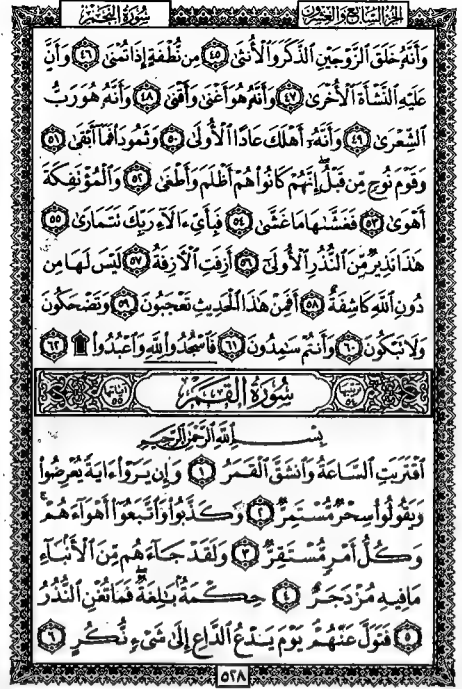 سُورَةُ النَّجْمِ الجُزءُ السَّابِعُ وَالعِشْرُونَ
وَأَنَّهُۥ خَلَقَ ٱلزَّوْجَيْنِ ٱلذَّكَرَ وَٱلْأُنثَىٰ ٤٥ مِن نُّطْفَةٍ إِذَا تُمْنَىٰ ٤٦ وَأَنَّ
عَلَيْهِ ٱلنَّشْأَةَ ٱلْأُخْرَىٰ ٤٧ وَأَنَّهُۥ هُوَ أَغْنَىٰ وَأَقْنَىٰ ٤٨ وَأَنَّهُۥ هُوَ رَبُّ
ٱلشِّعْرَىٰ ٤٩ وَأَنَّهُۥٓ أَهْلَكَ عَادًا ٱلْأُولَىٰ ٥٠ وَثَمُودَا۟ فَمَآ أَبْقَىٰ ٥١
وَقَوْمَ نُوحٍ مِّن قَبْلُ ۖ إِنَّهُمْ كَانُوا۟ هُمْ أَظْلَمَ وَأَطْغَىٰ ٥٢ وَٱلْمُؤْتَفِكَةَ
أَهْوَىٰ ٥٣ فَغَشَّىٰهَا مَا غَشَّىٰ ٥٤ فَبِأَىِّ ءَالَآءِ رَبِّكَ تَتَمَارَىٰ ٥٥
هَٰذَا نَذِيرٌ مِّنَ ٱلنُّذُرِ ٱلْأُولَىٰٓ ٥٦ أَزِفَتِ ٱلْءَازِفَةُ ٥٧ لَيْسَ لَهَا مِن
دُونِ ٱللَّهِ كَاشِفَةٌ ٥٨ أَفَمِنْ هَٰذَا ٱلْحَدِيثِ تَعْجَبُونَ ٥٩ وَتَضْحَكُونَ
وَلَا تَبْكُونَ ٦٠ وَأَنتُمْ سَٰمِدُونَ ٦١ فَٱسْجُدُوا۟ لِلَّهِ وَٱعْبُدُوا۟ ۩ ٦٢
ترتيبها ٥٤ سُورَةُ القَمَرِ آياتها ٥٥
بِسْمِ ٱللَّهِ ٱلرَّحْمَٰنِ ٱلرَّحِيمِ
ٱقْتَرَبَتِ ٱلسَّاعَةُ وَٱنشَقَّ ٱلْقَمَرُ ١ وَإِن يَرَوْا۟ ءَايَةً يُعْرِضُوا۟
وَيَقُولُوا۟ سِحْرٌ مُّسْتَمِرٌّ ٢ وَكَذَّبُوا۟ وَٱتَّبَعُوٓا۟ أَهْوَآءَهُمْ ۚ
وَكُلُّ أَمْرٍ مُّسْتَقِرٌّ ٣ وَلَقَدْ جَآءَهُم مِّنَ ٱلْأَنۢبَآءِ
مَا فِيهِ مُزْدَجَرٌ ٤ حِكْمَةٌۢ بَٰلِغَةٌ ۖ فَمَا تُغْنِ ٱلنُّذُرُ
٥ فَتَوَلَّ عَنْهُمْ ۘ يَوْمَ يَدْعُ ٱلدَّاعِ إِلَىٰ شَىْءٍ نُّكُرٍ ٦
٥٢٨